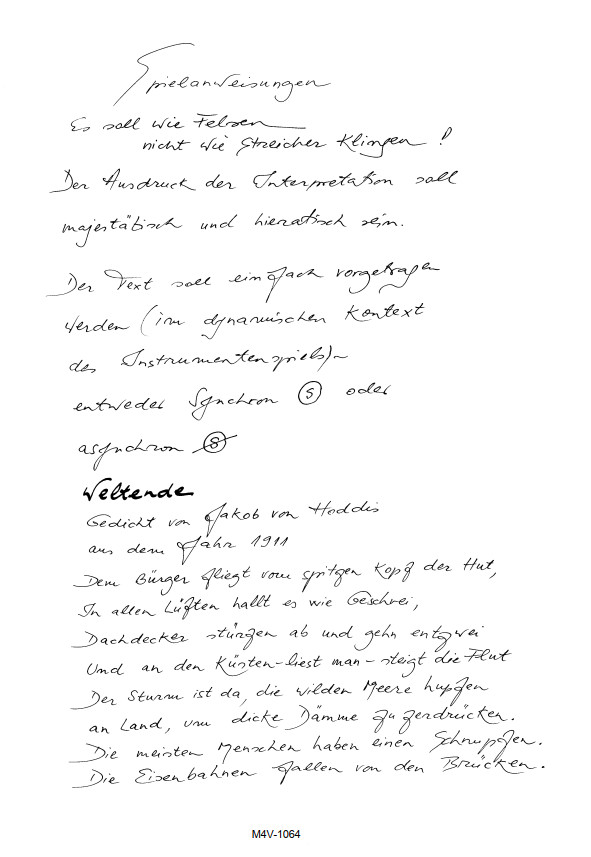 Spielanweisungen
Es soll wie Felsen
nicht wie Streicher Klingen!
Der Ausdruck der Interpretation soll
majestätisch und hieratisch sein.
Der Text soll einfach vorgetragen
werden (im dynamischen Kontext
des Instrumentenspiels) –
entweder Synchron Ⓢ oder
asynchron Ⓢ
Weltende
Gedicht von Jakob von Hoddis
aus dem Jahr 1911
Dem Bürger fliegt vom spitzen Kopf der Hut,
In allen Lüften hallt es wie Geschrei,
Dachdecker stürzen ab und gehn entzwei
Und an den Küsten – liest man – steigt die Flut
Der Sturm ist da, die wilden Meere hupfen
an Land, um dicke Dämme zu zerdrücken.
Die meisten Menschen haben einen Schnupfen.
Die Eisenbahnen fallen von den Brücken.
M4V-1064